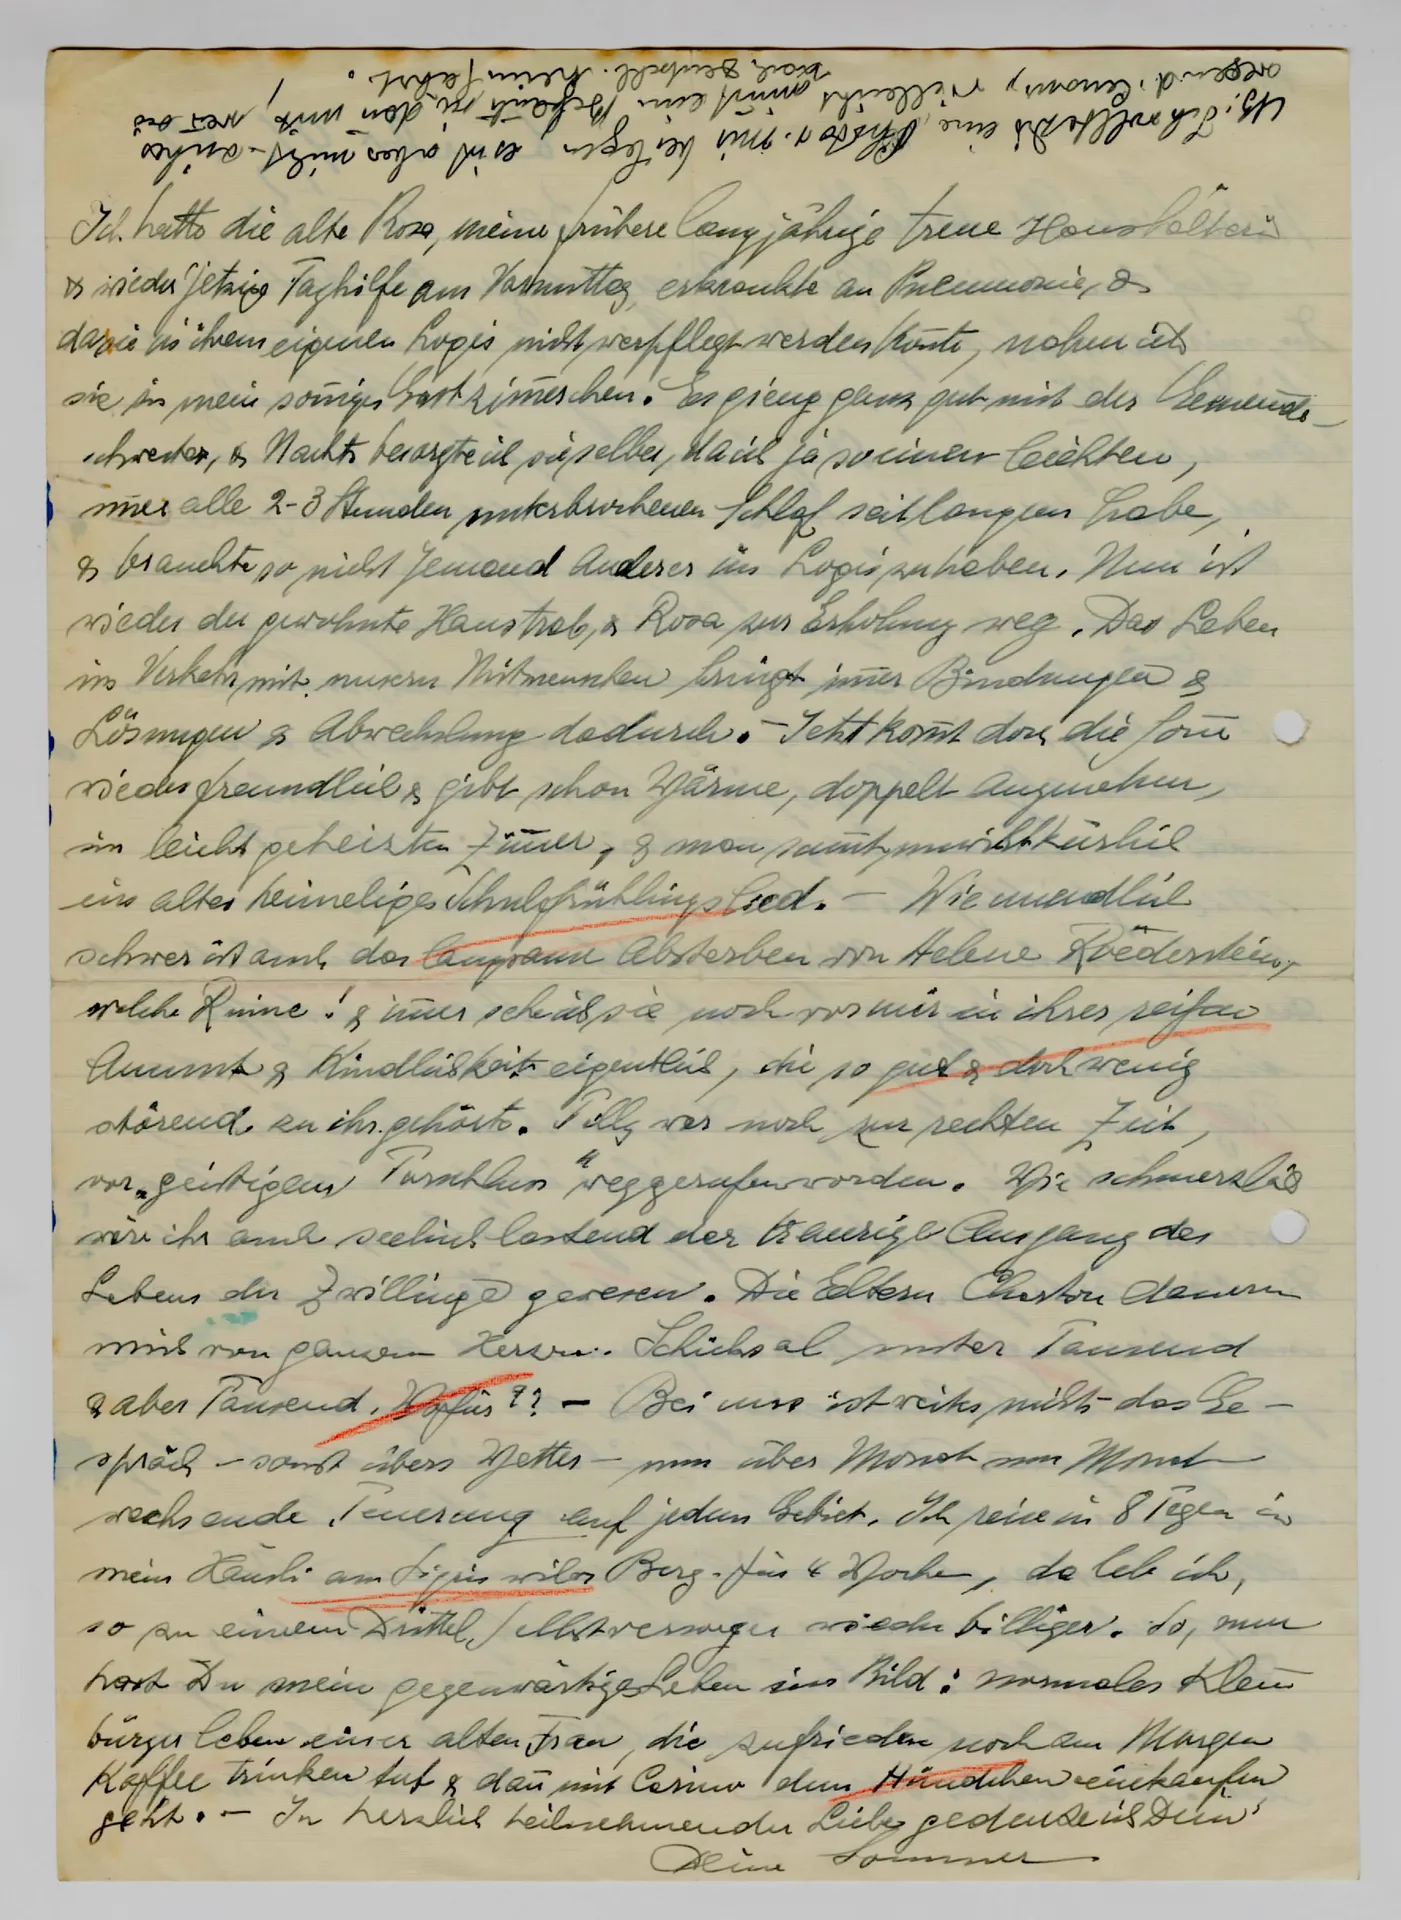 NB. Ich wollte Dir eine Photo v. mir beilegen, es ist aber nicht
vielleicht nimmt ein
nach Deutschl. heimfährt.
Ich hatte die alte Rosa, meine frühere langjährige treue Haushälterin
& wieder jetzige Taghilfe am Vormittag erkrankte an Pneumonie, &
da sie in ihrem eigenen Logis nicht verpflegt werden konnte, nahm ich
sie in mein soñiges Gastzim̄erchen. Es gieng ganz gut mit der Gemeinde-
schwester, & Nachts besorgte ich sie selber, da ich ja so einen leichten,
im̄er alle 2-3 Stunden unterbrochenen Schlaf seit langem habe,
& brauchte so nicht Jemand Anderer im Logis zu haben. Nun ist
wieder der gewohnte Haustrab, & Rosa zur Erholung weg. Das Leben
im Verkehr mit unsern Mitmenschen bringt im̄er Bindungen &
Lösungen & Abwechslung dadurch. – Jetzt kom̄t doch die Soñe
wieder freundlich & gibt schon Wärme, doppelt angenehm,
im leicht geheizten Zim̄er, & man sum̄t unwillkürlich
ein altes heimeliges Schulfrühlingslied. – Wie unendlich
schwer ist auch das langsame Absterben von Helene Roederstein,
welche Ruine! & im̄er seh ich sie noch vor mir in ihrer reifen
Anmut & Kindlichkeit eigentlich, die so gut & doch wenig
störend zu ihr gehörte. Tilly war noch zur rechten Zeit,
vor „geistigem Torschluss" weggerufen worden. Wie schmerzlich
wäre ihr auch seelisch lastend der traurige Ausgang des
Lebens der Zwillinge gewesen. Die Eltern dauern
mich von ganzem Herzen. Schicksal unter Tausend
& aber Tausend. Wofür?? – Bei uns ist weiters nichts das Ge-
spräch – sonst übers Wetter – nun über Monat um Monat
wachsende Teuerung auf jedem Gebiet. Ich reise in 8 Tagen in
mein Häusli am Sigriswiler Berg für 4 Wochen, da leb ich,
so zu einem Drittel, Selbstversorger wieder billiger. So, nun
hast Du mein gegenwärtiges Leben im Bild: normales Klein
bürger leben einer alten Frau, die zufrieden noch am Morgen
Kaffee trinken tut & dañ mit Casimo dem Hündchen einkaufen
geht. – In herzlich teilnehmender Liebe gedenke ich Dein
Deine Sommer